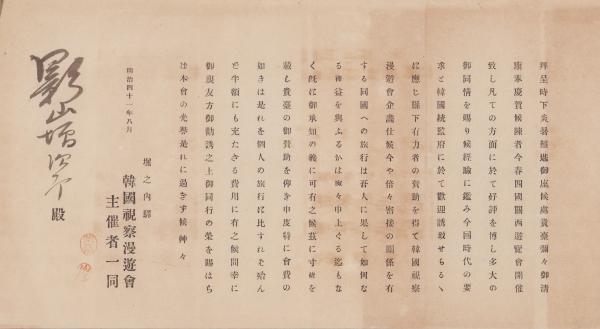 拜呈時下炎暑極烈御座候處貴臺彌々御清
康奉慶賀候陳者今春四國關西遊覽會開催
致し凡ての方面に於て好評を博し多大の
御同情を賜り候經驗に鑑み今回時代の要
求と韓國統監府に於て歡迎誘致せらるゝ
に應じ縣下有力者の賛助を得て韓國視察
漫遊會企畫仕候今や倍々密接の關係を有
する同國への旅行は吾人に果して如何な
る裨益を與ふるかは喋々申上ぐる迄もな
く既に御承知の義に可有之候茲に寸楮を
裁し貴臺の御賛助を仰き申度特に會費の
如きは是れを個人の旅行に比すれそ殆ん
と半額にも充たさる費用に有之候間幸に
御親友方御勸誘之上御同行の榮を賜はら
は本會の光榮是れに過きす候艸々
明治四十一年八月
堀之內驛
韓國視察漫遊會
主催者一同
影山 殿